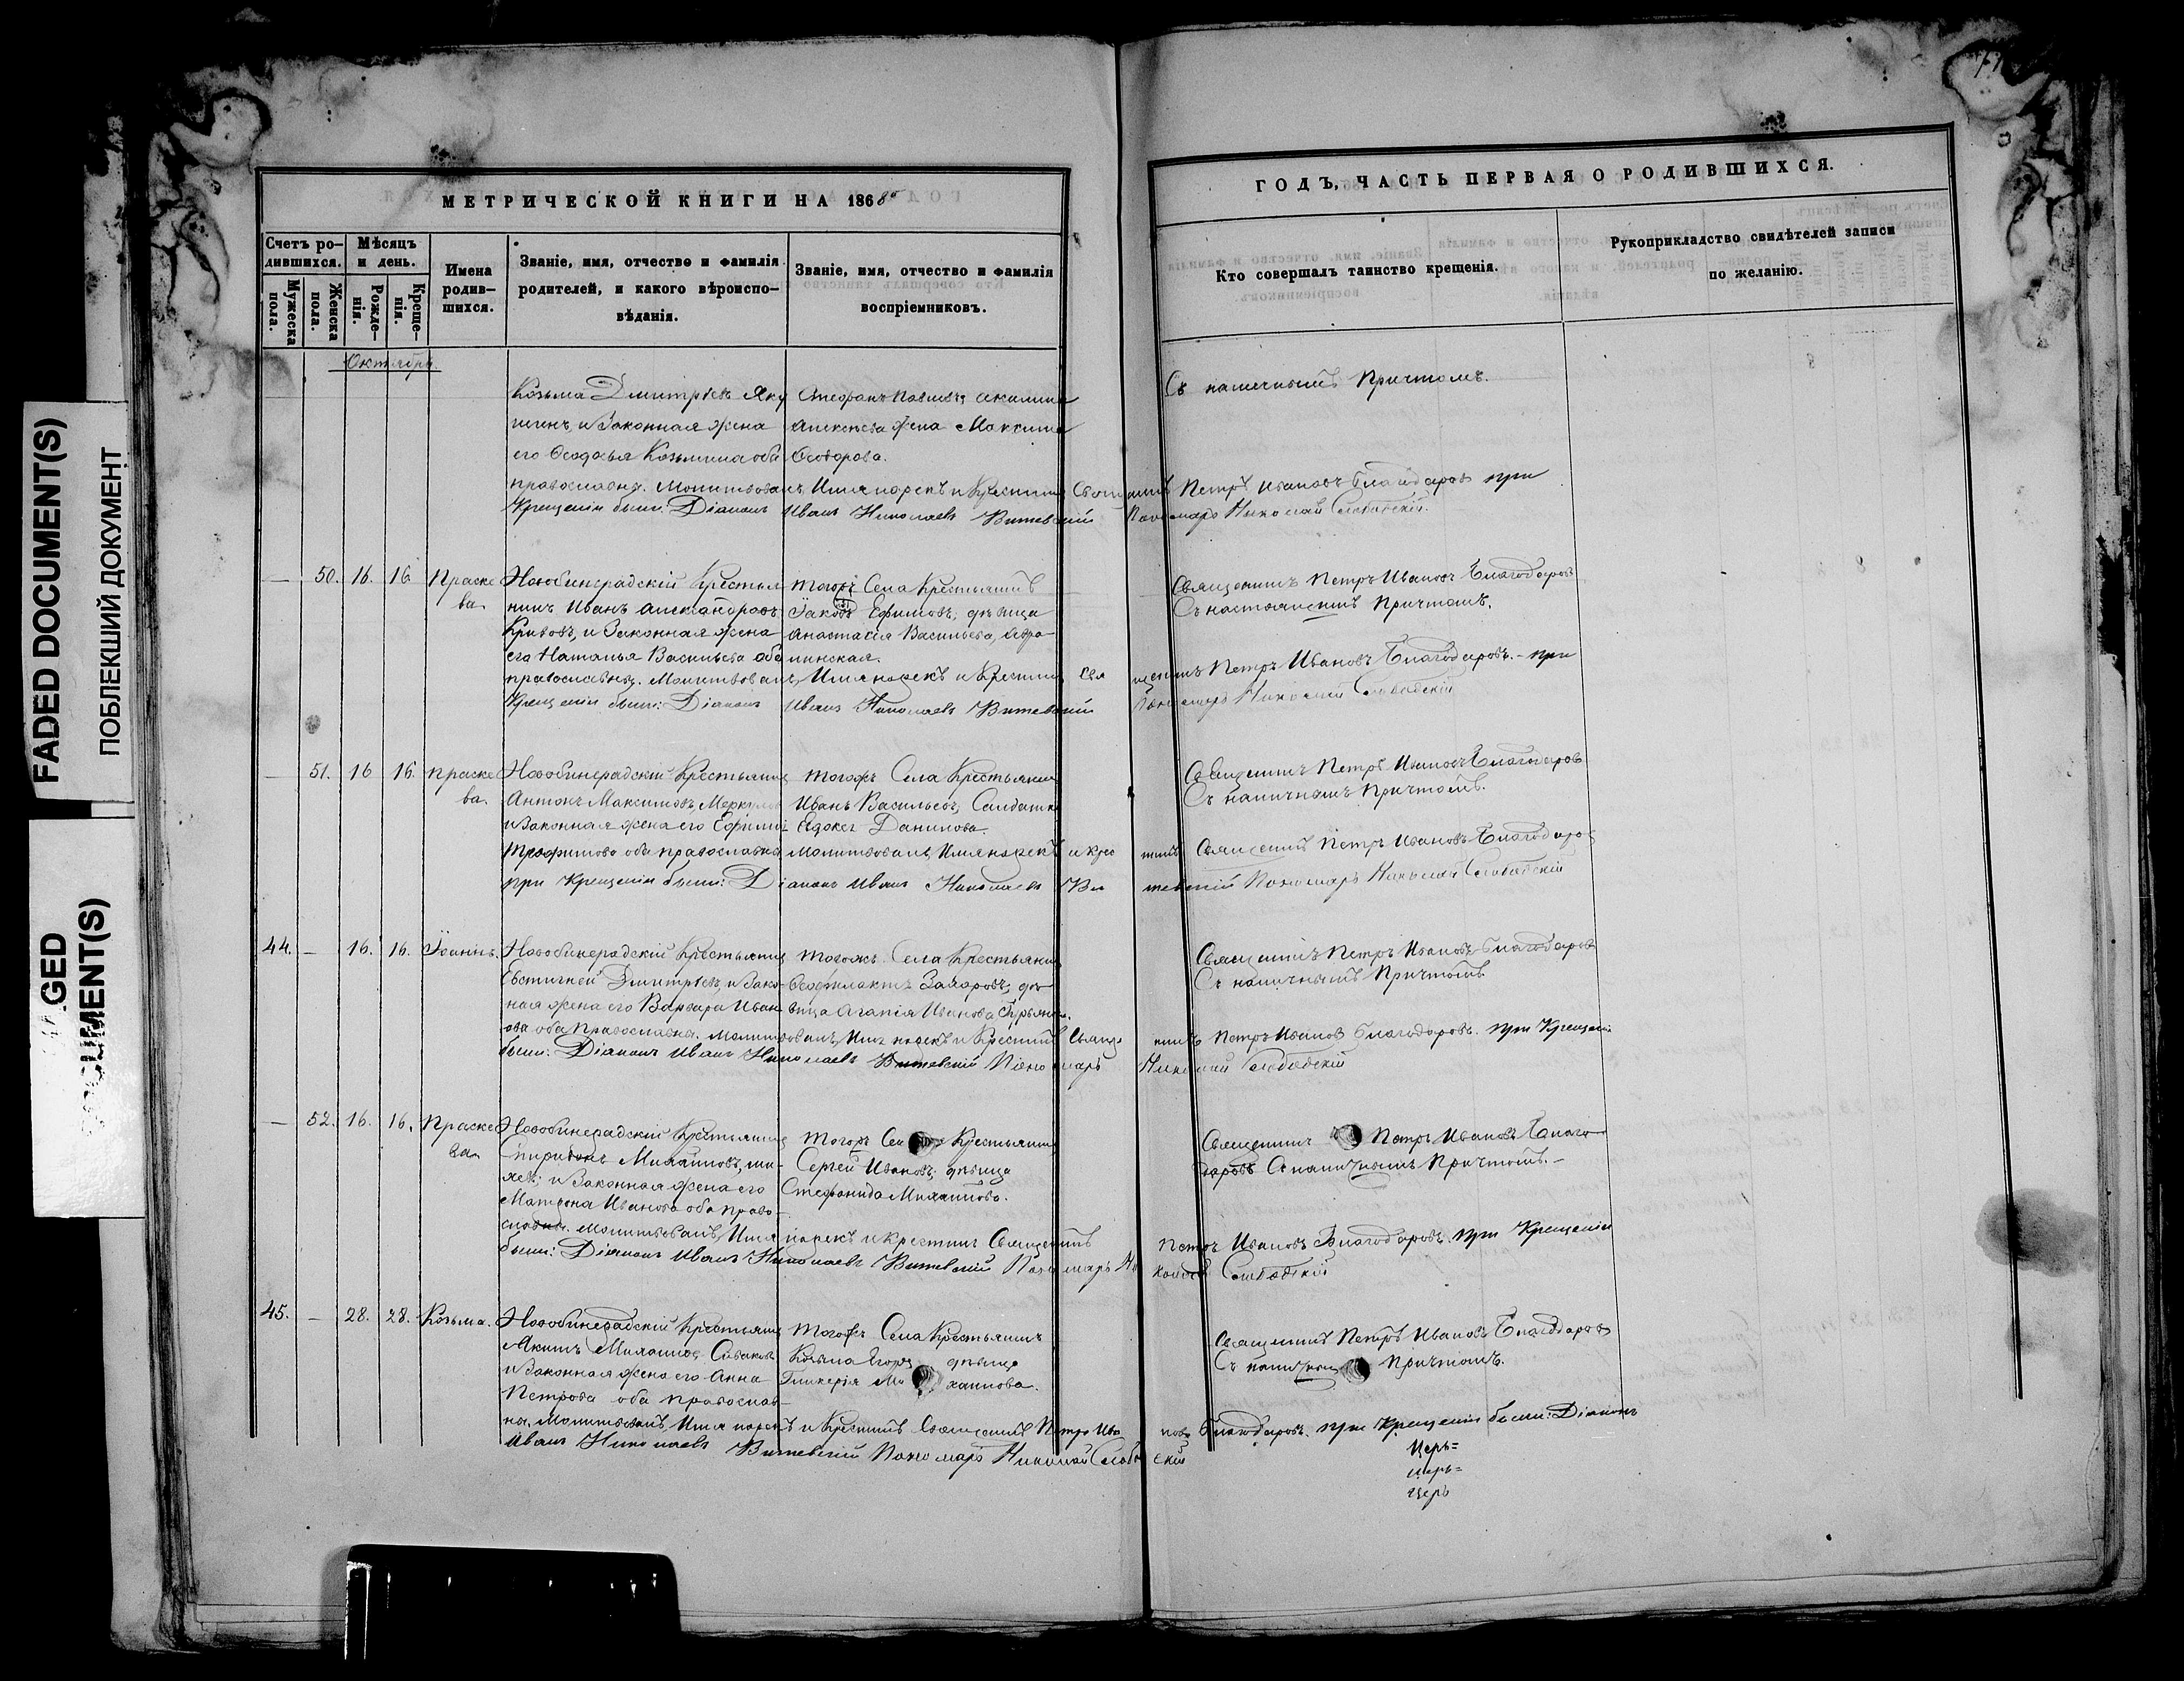 FADED DOCUMENT(S)
ПОБЛЕКШИЙ ДОКУМЕНТ
GED
CUMENT(S)
МЕТРИЧЕСКОЙ КНИГИ НА 1868
Счетъ ро-
дившихся.
Мѣсяцъ
и день.
Мужеска
пола.
Женска
пола.
Рожде-
нія.
Креще-
нія.
Имена
родив-
шихся.
Званіе, имя, отчество и фамилія
родителей, и какого вѣроиспо-
вѣданія.
Званіе, имя, отчество и фамилія
воспріемниковъ.
ГОДЪ, ЧАСТЬ ПЕРВАЯ О РОДИВШИХСЯ.
Кто совершалъ таинство крещенія.
Рукоприкладство свидѣтелей записи
по желанію.
Октября.
Козьма Димитріевъ Яку
и Законная жена
его Ѳеодосья Козьмина оба
православны. Молитвовалъ, Имя нарекъ и Крестилъ Петръ Ивановъ Благодаровъ при
Крещеніи были: Діаконъ Иванъ Николаевъ Витевскій Пономарь Николай Слободскій.
Стефанъ
жена Максима
Ѳеодорова.
Съ наличнымъ Причтомъ.
— 50. 16. 16. Праске
ва.
Новобинерадскій Крестья
нинъ Иванъ Александровъ
Кривовъ, и Законная жена
его Наталья Васильева оба
православны. Молитвовалъ, Имя нарекъ и Крестилъ Священникъ Петръ Ивановъ Благодаровъ. – при
Крещеніи были: Діаконъ Иванъ Николаевъ Витевскій Пономарь Николай Слободскій
Тогожъ Села Крестьянинъ
Іаковъ Ефимовъ, дѣвица
Анастасія Васильева,
Священникъ Петръ Ивановъ Благодаровъ
Съ Причтомъ.
— 51. 16 16. Праске
ва.
Новобинерадскій Крестьянинъ
Антонъ Максимовъ,
и Законная жена его
Трофимова оба православны Молитвовалъ, Имя нарекъ и крестилъ Священникъ Петръ Ивановъ Благодаровъ
при Крещеніи были: Діаконъ Иванъ Николаевъ Витевскій Пономарь Николай Слободскій
Тогожъ Села Крестьянинъ
Иванъ Васильевъ, Салдатка
Данилова.
Священникъ Петръ Ивановъ Благодаровъ
Съ наличнымъ Причтомъ.
44. — 16. 16. Іоаннъ.
Новобинерадскій Крестьянинъ
Евстигней Димитріевъ, и Закон
ная жена его Варвара Иван
ова оба Православны. Молитвовалъ, Имя нарекъ и Крестилъ Священникъ Петръ Ивановъ Благодаровъ. при Крещеніи
были: Діаконъ Иванъ Николаевъ Витевскій Пономарь Николай Слободскій
Тогожъ Села Крестьянинъ
Ѳеофилактъ Захаровъ, дѣ
вица Агапія Иванова
Священникъ Петръ Ивановъ Благодаровъ
Съ наличнымъ Причтомъ.
— 52. 16. 16. Праске
ва
Новобинерадскій Крестьянинъ
Спиридонъ Михайловъ,
и Законная жена его
Матрона Иванова оба право
славны. Молитвовалъ, Имя нарекъ и Крестилъ Священникъ Петръ Ивановъ Благодаровъ. при Крещеніи
были: Діаконъ Иванъ Николаевъ Витевскій Пономарь Николай Слободскій
Тогожъ Села Крестьянинъ
Сергѣй Ивановъ, дѣвица
Стефанида Михайлова.
Священникъ Петръ Ивановъ Благо
даровъ С наличнымъ Причтомъ. –
45. — 28. 28. Козьма.
Новобинерадскій Крестьянинъ
Акимъ Михайловъ
и Законная жена его Анна
Петрова оба православ
ны. Молитвовалъ, Имя нарекъ и Крестилъ Священникъ Петръ Ивановъ Благодаровъ. при Крещеніи были: Діаконъ
Иванъ Николаевъ Витевскій Пономарь Николай Слободскій
Тогожъ Села Крестьянинъ
Козьма дѣвица
Гликерія Михайлова.
Священникъ Петръ Ивановъ Благодаровъ
Съ Причтомъ.
Церь=
церь=
церь